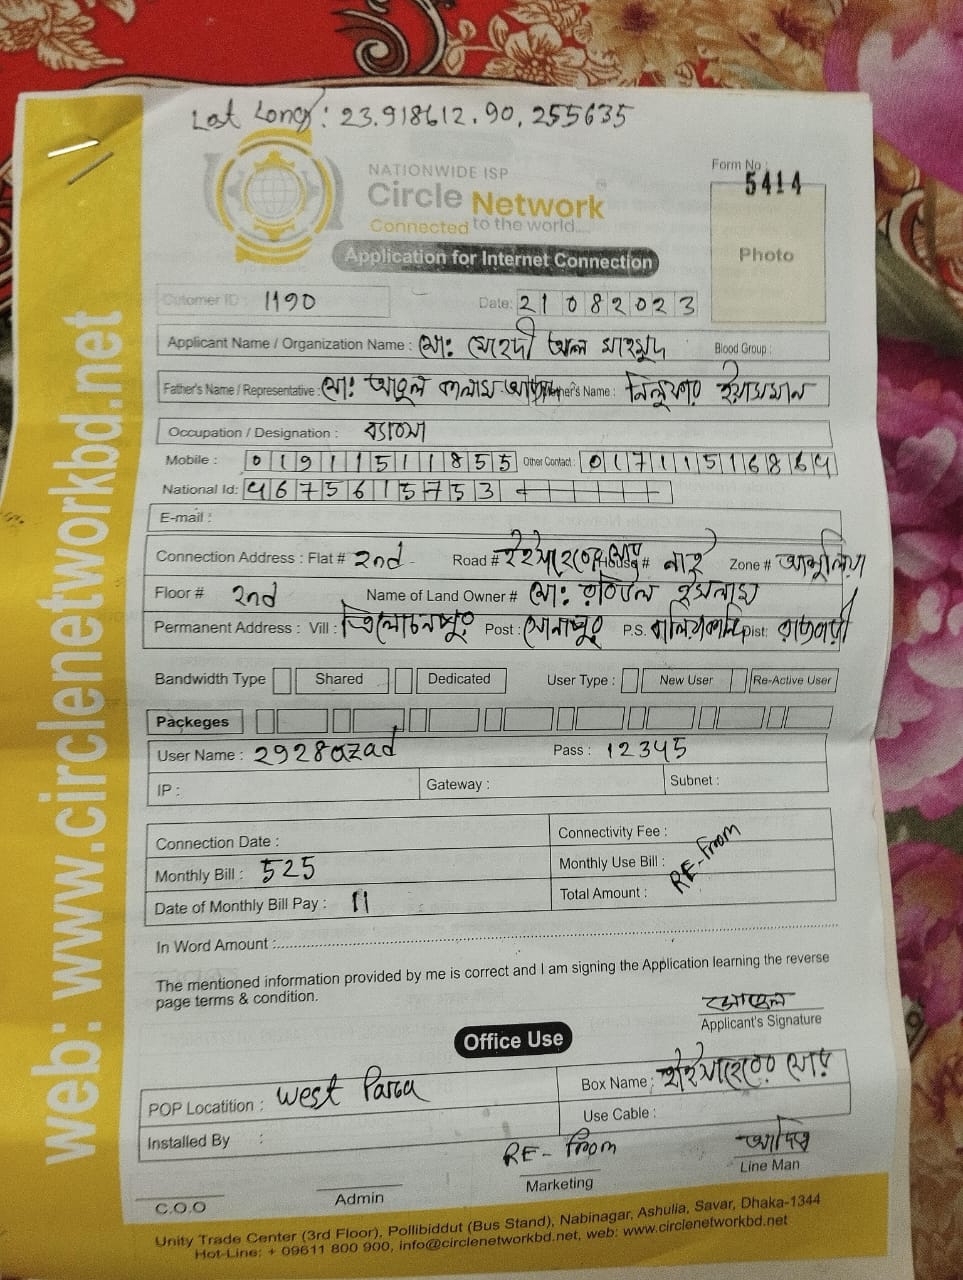 Lat Long: 23.918612.90.255635
NATIONWIDE ISP
Circle Network
Connected to the world....
Form No :
5414
Photo
Application for Internet Connection
Cutomer ID : 1190 Date: 21082023
Applicant Name / Organization Name : মো: মেহেদী আল মাহমুদ Blood Group :
Father's Name / Representative : মো: আবুল কালাম Name : নিলুফার ইয়াসমিন
Occupation / Designation : ব্যবসা
Mobile : 01911511855 Other Contact : 01711516864
National Id: 4675615753
E-mail :
Connection Address : Flat # 2nd Road # # নাই Zone # আশুলিয়া
Floor # 2nd Name of Land Owner # মো: রবিউল ইসলাম
Permanent Address : Vill : ত্রিলোচনপুর Post : সোনাপুর P.S. বালিয়াকান্দি Dist: রাজবাড়ী
Bandwidth Type Shared Dedicated User Type : New User Re-Active User
Packeges
User Name : 2928azad Pass : 12345
IP : Gateway : Subnet :
Connection Date : Connectivity Fee :
Monthly Bill : 525 Monthly Use Bill : RE-From
Date of Monthly Bill Pay : 11 Total Amount :
In Word Amount :
The mentioned information provided by me is correct and I am signing the Application learning the reverse
page terms & condition.
Applicant's Signature
Office Use
POP Locatition : West Para Box Name :
Use Cable :
Installed By :
RE- From
C.O.O Admin Marketing Line Man
Unity Trade Center (3rd Floor), Pollibiddut (Bus Stand), Nabinagar, Ashulia, Savar, Dhaka-1344
Hot-Line: + 09611 800 900, info@circlenetworkbd.net, web: www.circlenetworkbd.net
web: www.circlenetworkbd.net